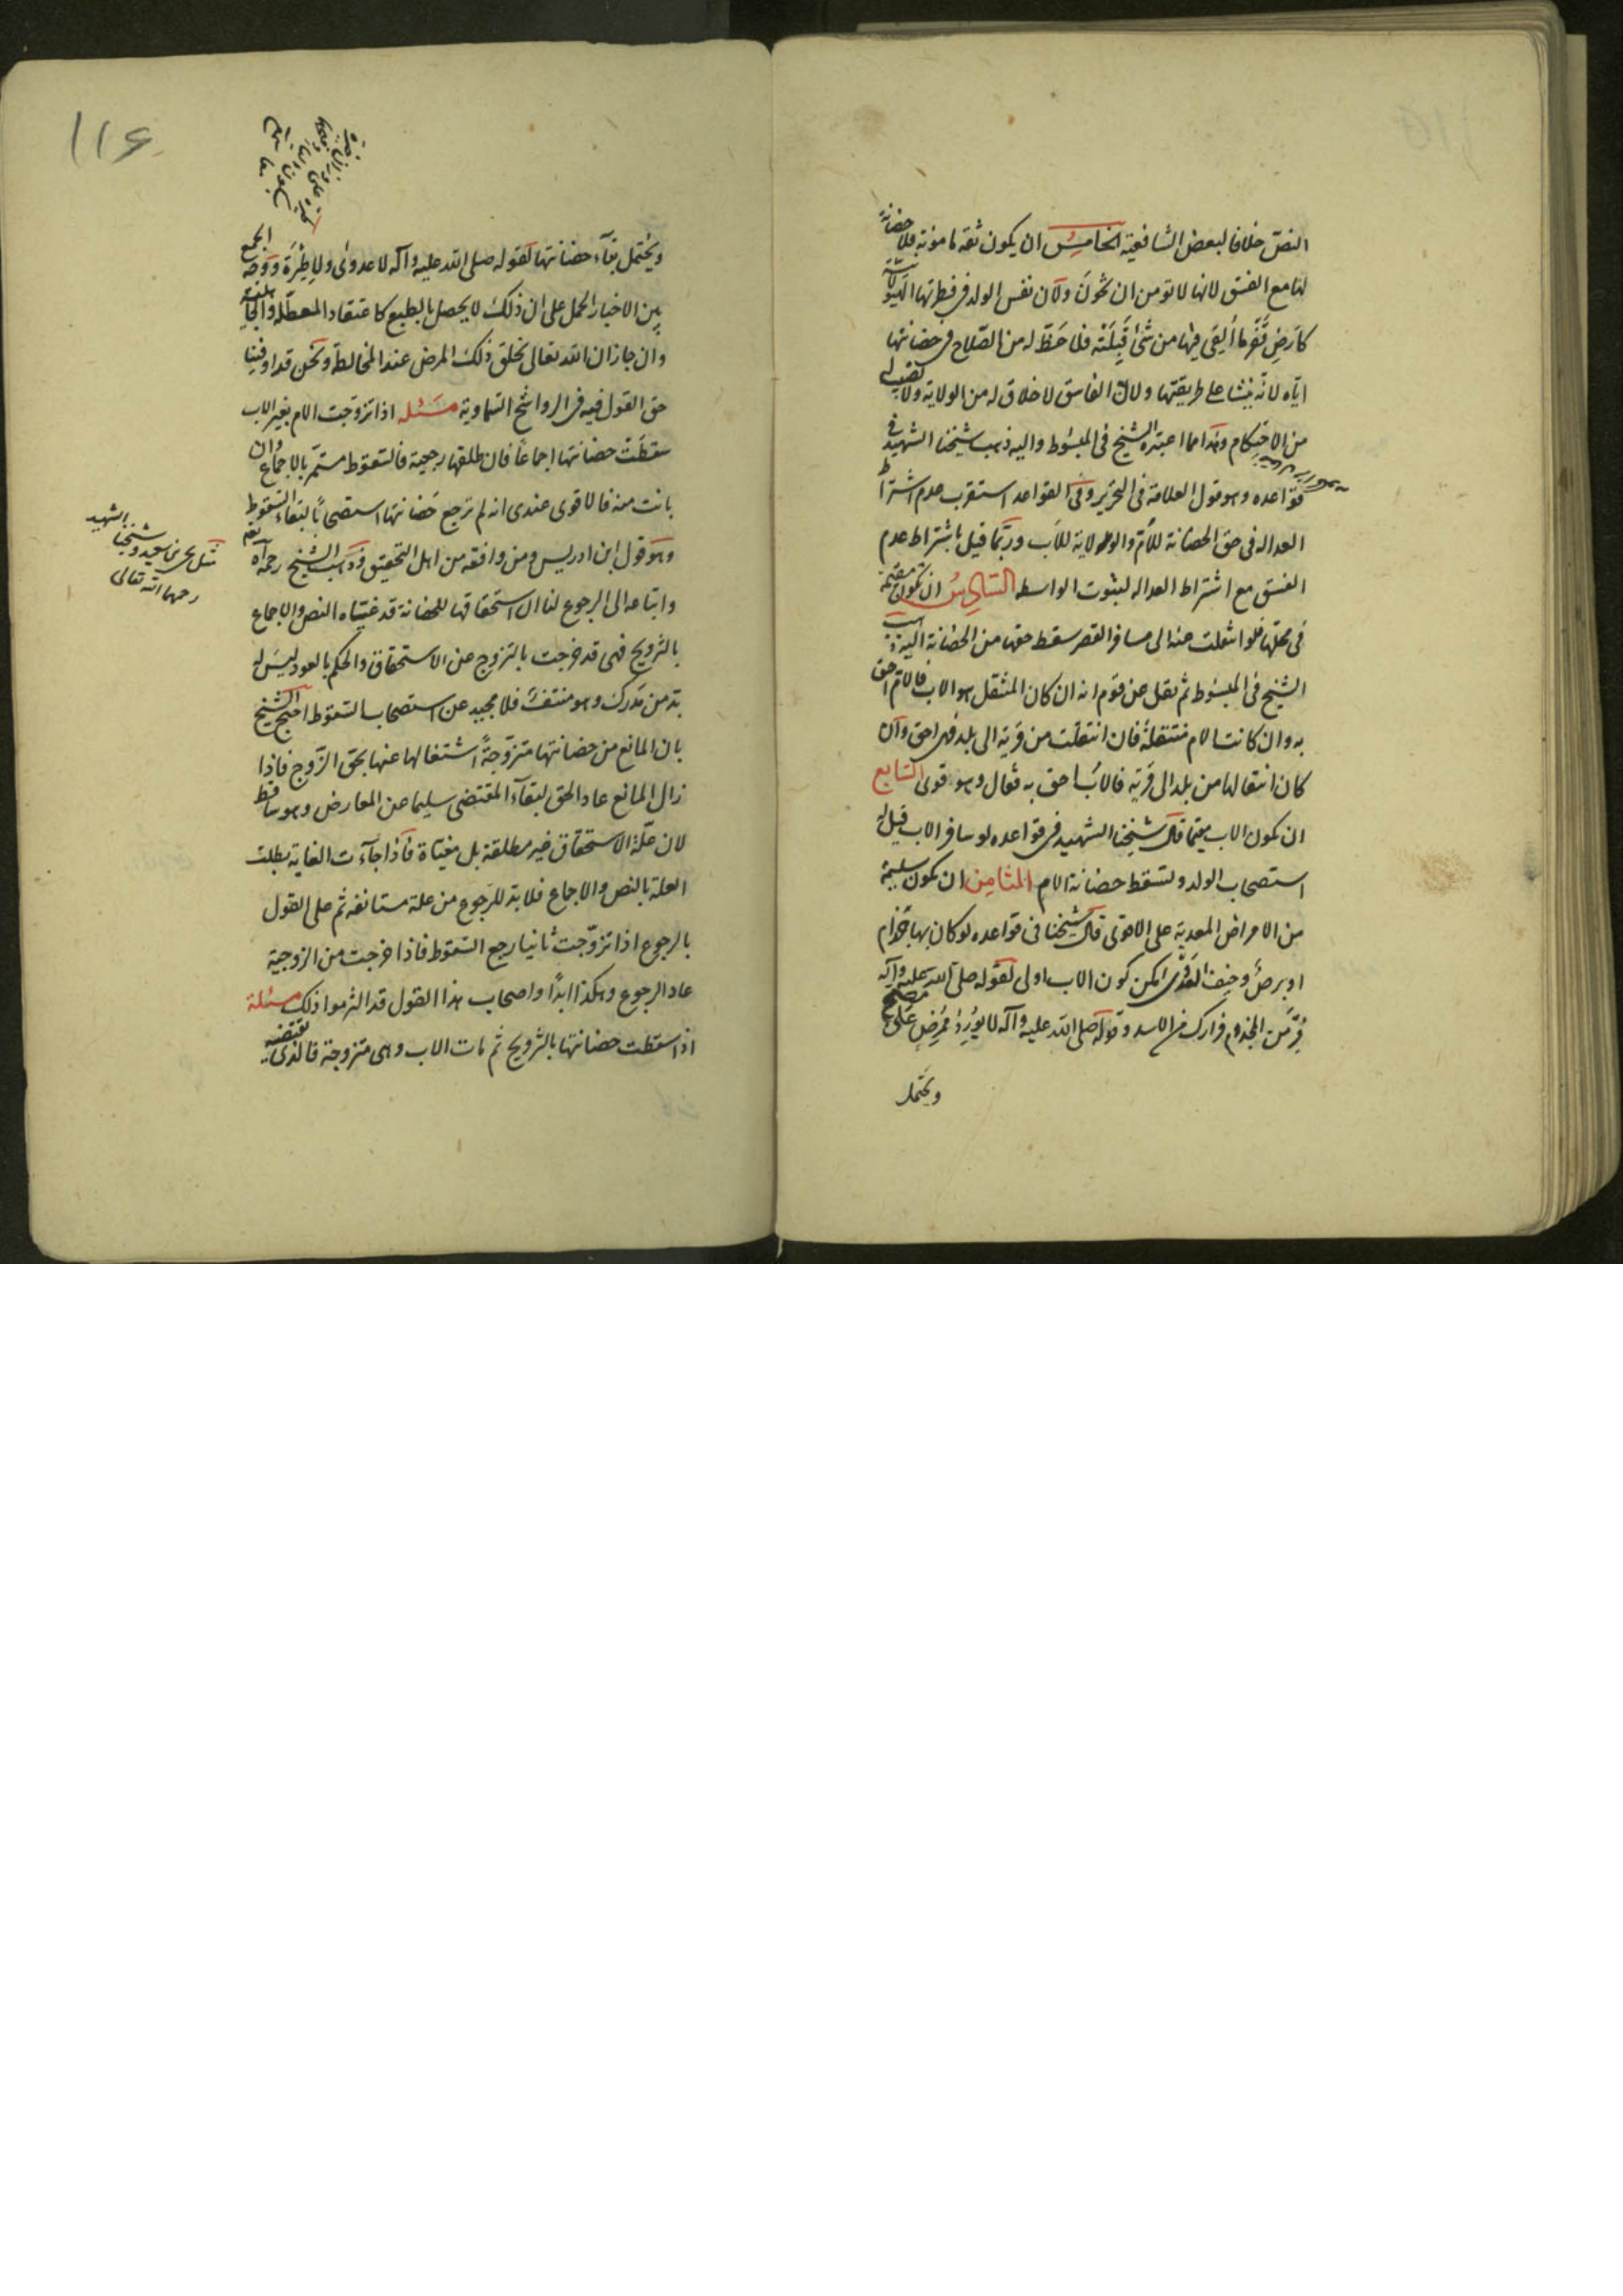 النص خلافا لبعض الشافعية الخامس ان يكون ثقه مامونة فلا حضانة
لها مع الفسق لانها لا تومن ان تخون ولان نفس الولد فى فطرتها الهيولانية
كارض قفر ما ألقى فيها من شئ قبلته فلا حظ له من الصلاح فى حضانتها
اياه لانه ينشا على طريقتها ولان الفاسق لا خلاق له من الولاية ولا نصيب له
من الاحكام وهذا مما اعتبره الشيخ فى المبسوط واليه ذهب شيخنا الشهيد فى
قواعده وهو قول العلامة فى التحرير وفى القواعد استقرب عدم اشتراط
العدالة فى حق الحضانة للأم والولاية للأب وربما قيل باشتراط عدم
الفسق مع اشتراط العداله لثبوت الواسطه السادس ان تكون مقيمة
فى محلتها فلو انتقلت عنه الى مسافة القصر سقط حقها من الحضانة اليه ذهب
الشيخ فى المبسوط ثم نقل عن قوم انه ان كان المنتقل هو الاب فالام احق
به وان كانت الام منتقلة فان انتقلت من قرية الى بلد فهى احق وان
كان انتقالها من بلد الى قرية فالاب احق به قال وهو قوى السابع
ان يكون الاب مقيما قال شيخنا الشهيد فى قواعده لو سافر الاب قيل له
استصحاب الولد وتسقط حضانة الام الثامن ان يكون سليمة
من الامراض المعدية على الاقوى قال شيخنا فى قواعده لو كان بها جذام
او برص وخيف العدوى امكن كون الاب اولى لقوله صلى الله عليه وآله
فر من المجذوم فرارك من الاسد وقوله صلى الله عليه وآله لا يورد ممرض على مصح
ويحتمل
١١٦
ويحتمل بقاء حضانتها لقوله صلى الله عليه وآله لا عدوى ولا طيرة ووجه الجمع
بين الاخبار الحمل على ان ذلك لا يحصل بالطبع كاعتقاد المعطلة والجاهلية
وان جاز ان الله تعالى يخلق ذلك المرض عند المخالطة ونحن قد اوفينا
حق القول فيه فى الرواشح السماوية مسئله اذا تزوجت الام بغير الاب
سقطت حضانتها اجماعا فان طلقها رجعية فالسقوط مستمر بالاجماع وان
بانت منه فالاقوى عندى انه لم ترجع حضانتها استصحابا لبقاء السقوط
وهو قول ابن ادريس ومن وافقه من اهل التحقيق وذهب الشيخ رحمه الله
واتباعه الى الرجوع لنا ان استحقاقها للحضانة قد غيّاه النص والاجماع
بالتزويج فهى قد خرجت بالتزوج عن الاستحقاق والحكم بالعود ليس له
بد من مدرك وهو منتف فلا محيد عن استصحاب السقوط احتج الشيخ
بان المانع من حضانتها متزوجة اشتغالها عنها بحق الزوج فاذا
زال المانع عاد الحق لبقاء المقتضى سليما عن المعارض وهو ساقط
لان علة الاستحقاق غير مطلقة بل مغياة فاذا جآءت الغاية بطلت
العلة بالنص والاجماع فلا بد للرجوع من علة مستانفه ثم على القول
بالرجوع اذا تزوجت ثانيا رجع السقوط فاذا خرجت من الزوجية
عاد الرجوع وهكذا ابدا واصحاب هذا القول قد التزموا ذلك مسئلة
اذا سقطت حضانتها بالتزويج ثم مات الاب وهى متزوجة فالذى يقتضيه
مثل يحيى بن سعيد وشيخنا الشهيد
رحمهما الله تعالى